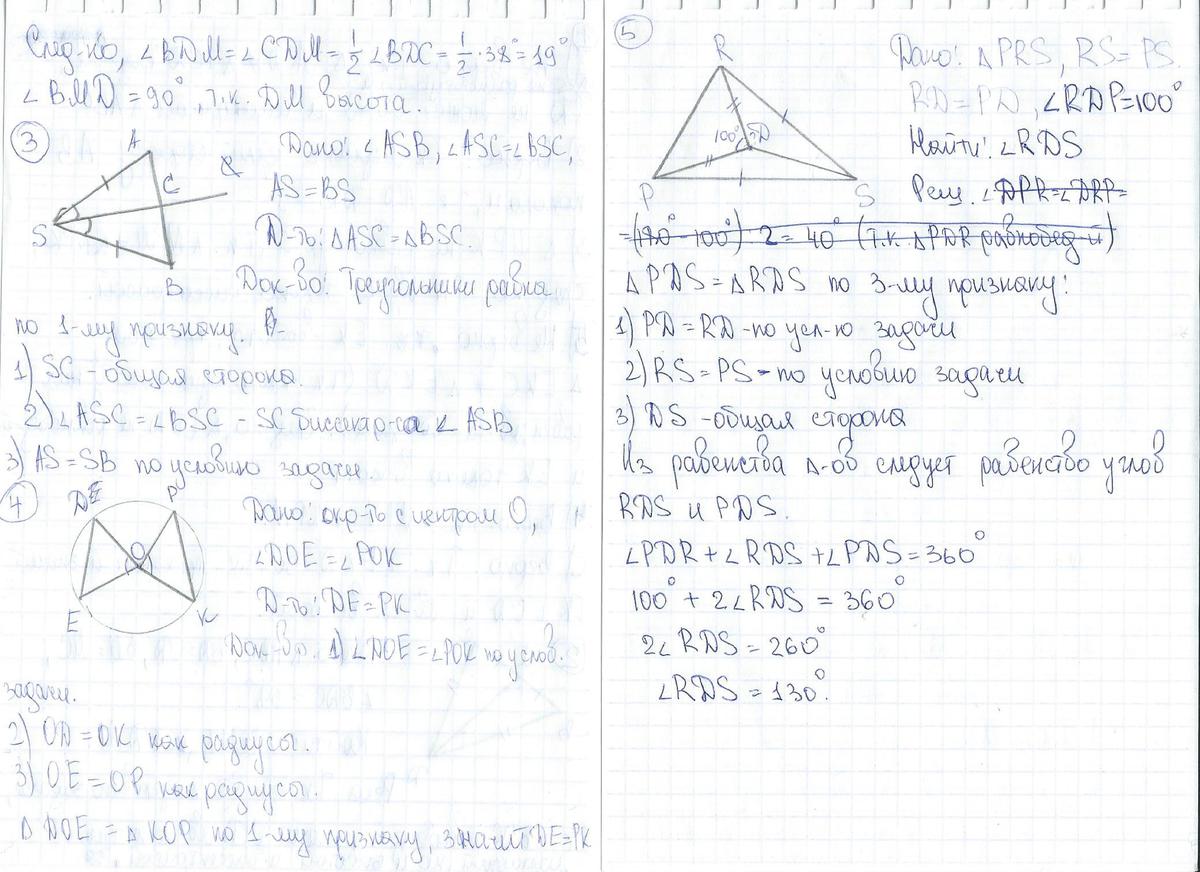 След-но, ∠BDM=∠CDM=½∠BDC=½·38°=19°
∠BMD=90°, т.к. DM высота.
3
A
C
Q
S
B
Дано: ∠ASB, ∠ASC=∠BSC,
AS=BS
Д-ть: △ASC=△BSC.
Док-во: Треугольники равна
по 1-му признаку.
1) SC - общая сторона.
2) ∠ASC=∠BSC - SC биссектр-са ∠ASB
3) AS=SB по условию задачи
4
D
P
O
E
K
Дано: окр-ть с центром O,
∠DOE=∠POK
Д-ть: DE=PK
Док-во. 1) ∠DOE=∠POK по услов.
задачи.
2) OD=OK как радиусы.
3) OE=OP как радиусы.
△DOE=△KOP по 1-му признаку, значит DE=PK
5
R
100°
D
P
S
Дано: △PRS, RS=PS.
RD=PD, ∠RDP=100°
Найти: ∠RDS
Реш. ∠DPR=∠DRP=
=(180°-100°) 2=40° (т.к. △PDR равнобед-й)
△PDS=△RDS по 3-му признаку:
1) PD=RD - по усл-ю задачи
2) RS=PS - по условию задачи
3) DS - общая сторона
Из равенства △-ов следует равенство углов
RDS и PDS.
∠PDR+∠RDS+∠PDS=360°
100°+2∠RDS=360°
2∠RDS=260°
∠RDS=130°.